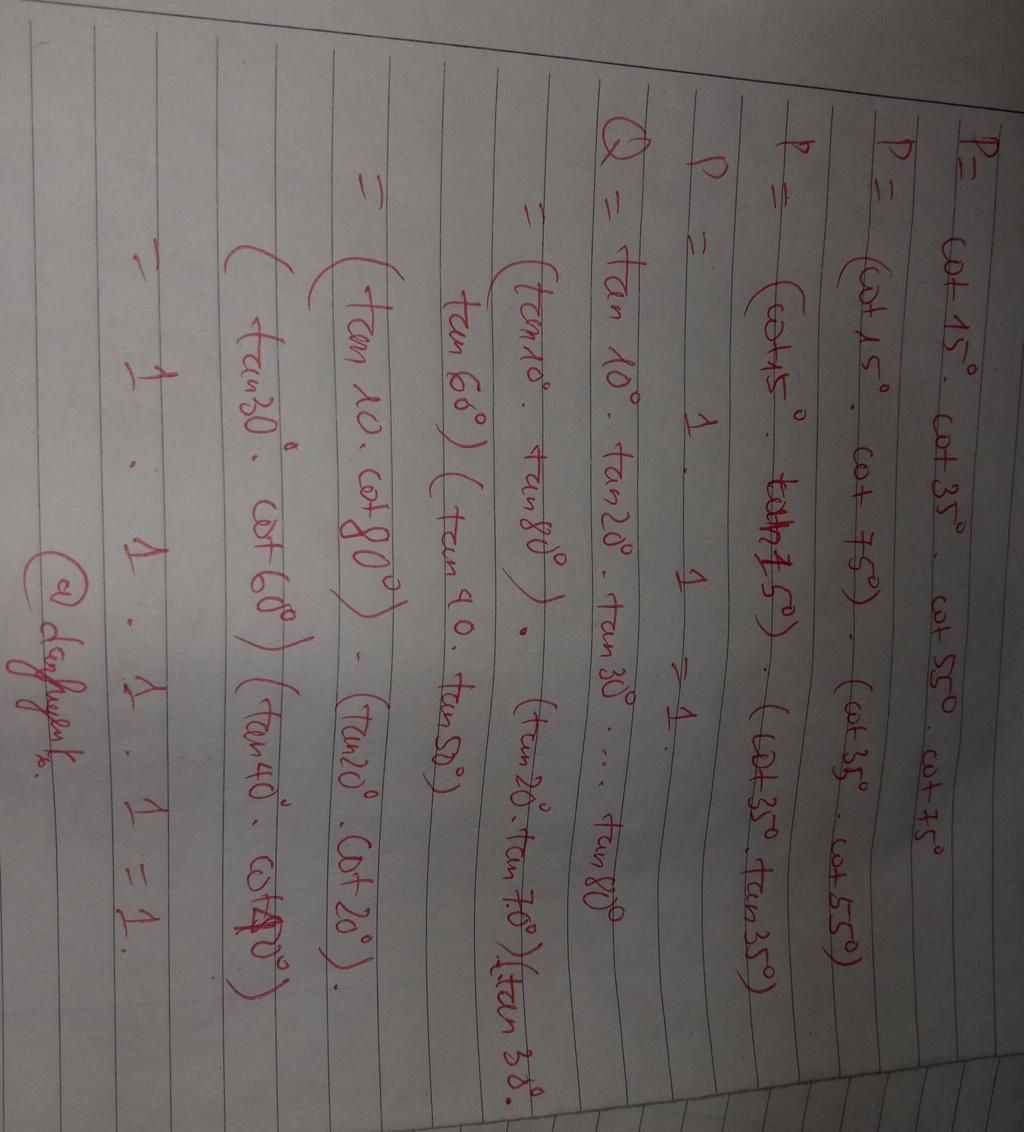 P = cot 15°. cot 35°. cot 55°. cot 75°
P = (cot 15°. cot 75°). (cot 35°. cot 55°)
P = (cot 15°. tan 15°). (cot 35°. tan 35°)
P = 1 . 1 = 1.
Q = tan 10°. tan 20°. tan 30°. ... tan 80°
= (tan 10°. tan 80°). (tan 20°. tan 70°)(tan 30°.
tan 60°)(tan 40. tan 50°)
= (tan 10. cot 80°). (tan 20°. cot 20°).
(tan 30°. cot 60°)(tan 40°. cot 40°)
= 1 . 1 . 1 . 1 = 1.